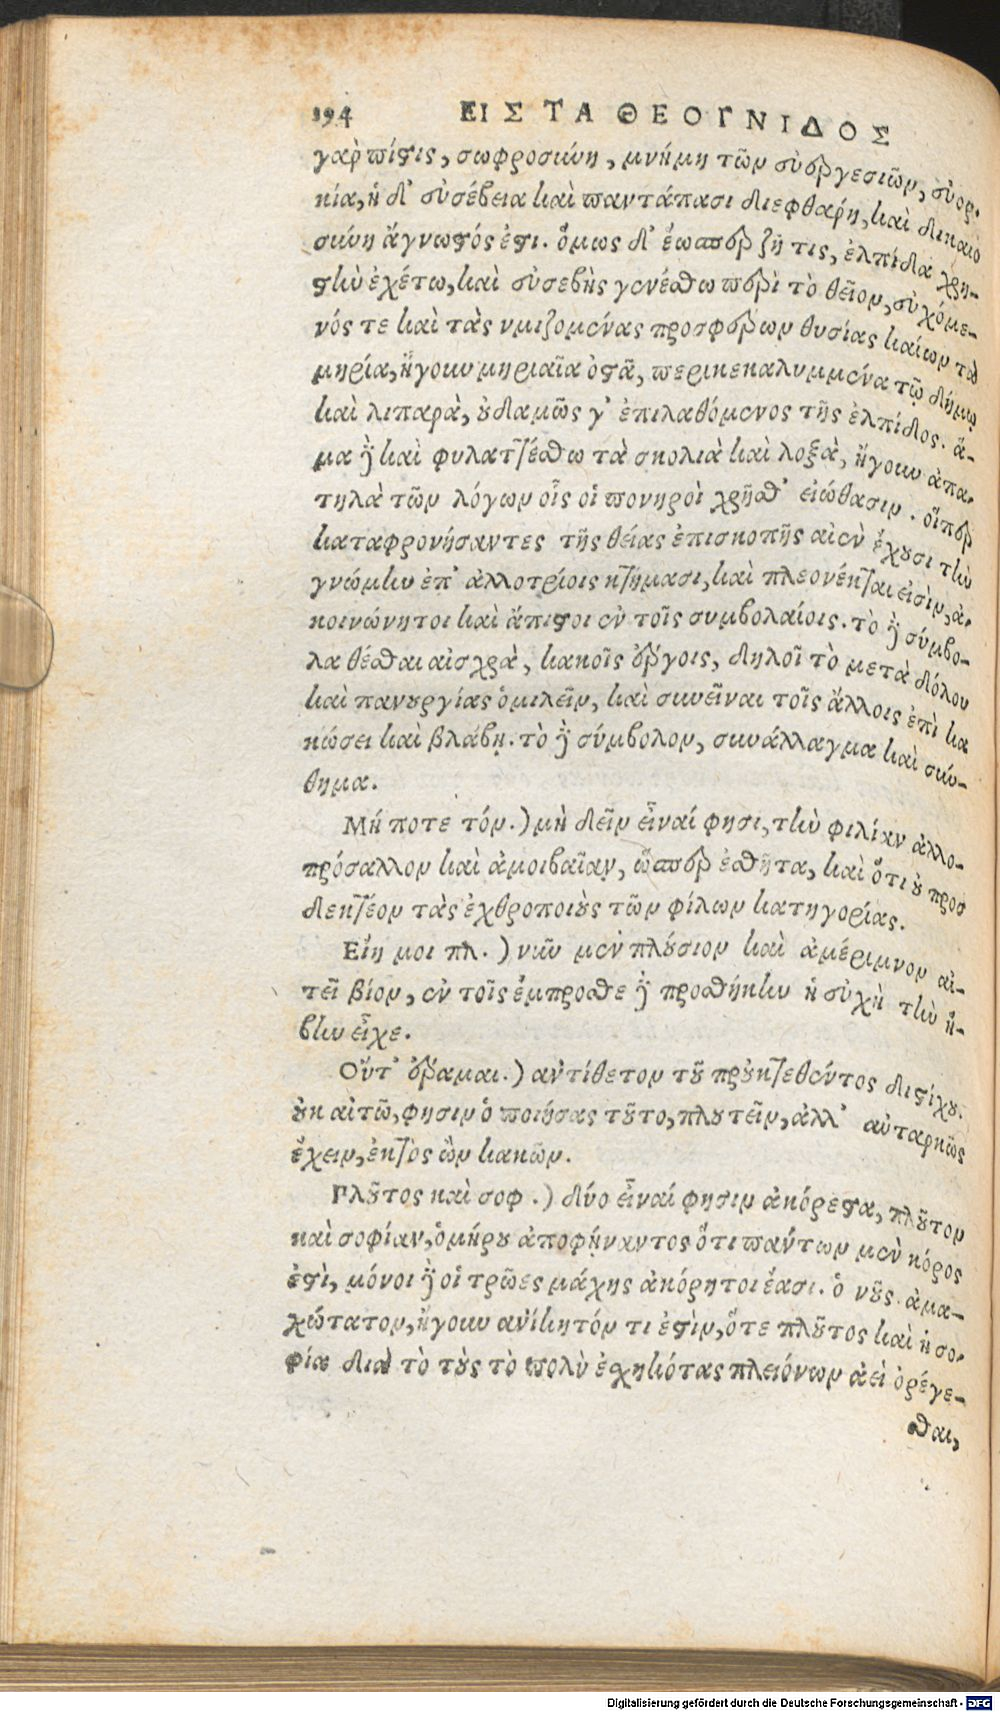 194 ΕΙΣ ΤΑ ΘΕΟΓΝΙΔΟΣ
γὰρ πίστις, σωφροσύνη, μνήμη τῶν εὐεργεσιῶν, εὐορ-
κία, ἡ δ' εὐσέβεια καὶ παντάπασι διεφθάρη, καὶ δικαιο
σύνη ἄγνωστός ἐστι. ὅμως δ' ἕωσπερ ζῇ τις, ἐλπίδα χρη-
στὴν ἐχέτω, καὶ εὐσεβὴς γενέσθω περὶ τὸ θεῖον, εὐχόμε-
νός τε καὶ τὰς νμιζομένας προσφέρων θυσίας καίων τὰ
μηρία, ἤγουν μηριαῖα ὀστᾶ, περικεκαλυμμένα τῷ δήμῳ
καὶ λιπαρὰ, οὐδαμῶς γ' ἐπιλαθόμενος τῆς ἐλπίδος. ἅ-
μα δὲ καὶ φυλαττέσθω τὰ σκολιὰ καὶ λοξὰ, ἤγουν ἀπα-
τηλὰ τῶν λόγων οἷς οἱ πονηροὶ χρῆσθ' εἰώθασιν. οἵπερ
καταφρονήσαντες τῆς θείας ἐπισκοπῆς αἰὲν ἔχουσι τὴν
γνώμην ἐπ' ἀλλοτρίοις κτήμασι, καὶ πλεονέκται εἰσὶν, ἀ-
κοινώνητοι καὶ ἄπιστοι ἐν τοῖς συμβολαίοις. τὸ δὲ σύμβο-
λα θέσθαι αἰσχρὰ, κακοῖς ἔργοις, δηλοῖ τὸ μετὰ δόλου
καὶ πανουργίας ὁμιλεῖν, καὶ συνεῖναι τοῖς ἄλλοις ἐπὶ κα
κώσει καὶ βλάβῃ. τὸ δὲ σύμβολον, συνάλλαγμα καὶ σύν-
θημα.
Μή ποτε τόν.) μὴ δεῖν εἶναί φησι, τὴν φιλίαν ἀλλο-
πρόσαλλον καὶ ἀμοιβαῖαν, ὥσπερ ἐσθῆτα, καὶ ὅτι οὐ προσ
δεκτέον τὰς ἐχθροποιοὺς τῶν φίλων κατηγορίας.
Εἴη μοι πλ.) νῦν μὲν πλούσιον καὶ ἀμέριμνον αἰ-
τεῖ βίον, ἐν τοῖς ἔμπροσθε δὲ προσθήκην ἡ εὐχὴ τὴν ἥ-
βην εἶχε.
Οὔτ' ἔραμαι.) ἀντίθετον τοῦ προὐκτεθέντος διστίχου.
οὐκ αἰτῶ, φησιν ὁ ποιήσας τοῦτο, πλουτεῖν, ἀλλ' αὐταρκῶς
ἔχειν, ἐκτὸς ὢν κακῶν.
Πλοῦτος καὶ σοφ.) δύο εἶναί φησιν ἀκόρεστα, πλοῦτον
καὶ σοφίαν, ὁμήρου ἀποφήναντος ὅτι πάντων μὲν κόρος
ἐστὶ, μόνοι δὲ οἱ τρῶες μάχης ἀκόρητοι ἔασι. ὁ νοῦς. ἀμα-
χώτατον, ἤγουν ἀνίκητόν τι ἐστὶν, ὅτε πλοῦτος καὶ ἡ σο-
φία διὰ τὸ τοὺς τὸ πολὺ ἐσχηκότας πλειόνων ἀεὶ ὀρέγε-
σθαι,
Digitalisierung gefördert durch die Deutsche Forschungsgemeinschaft - DFG